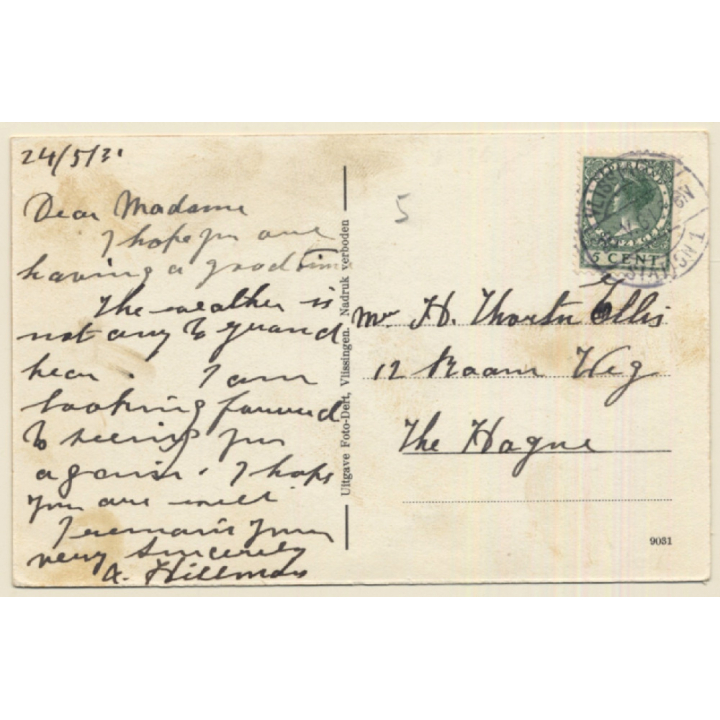 24/5/31
Dear Madame
I hope you are
having a good time
The weather is
not any to grand
hear. I am
looking forward
to seeing you
again. I hope
you are well
I remain yours
very sincerely
A. Hillman
5
Uitgave Foto-Dert, Vlissingen. Nadruk verboden
NEDERLAND
5 CENT
STATION 1
Mr H. Thorton Ellis
12 Raam Weg
The Hague
9031